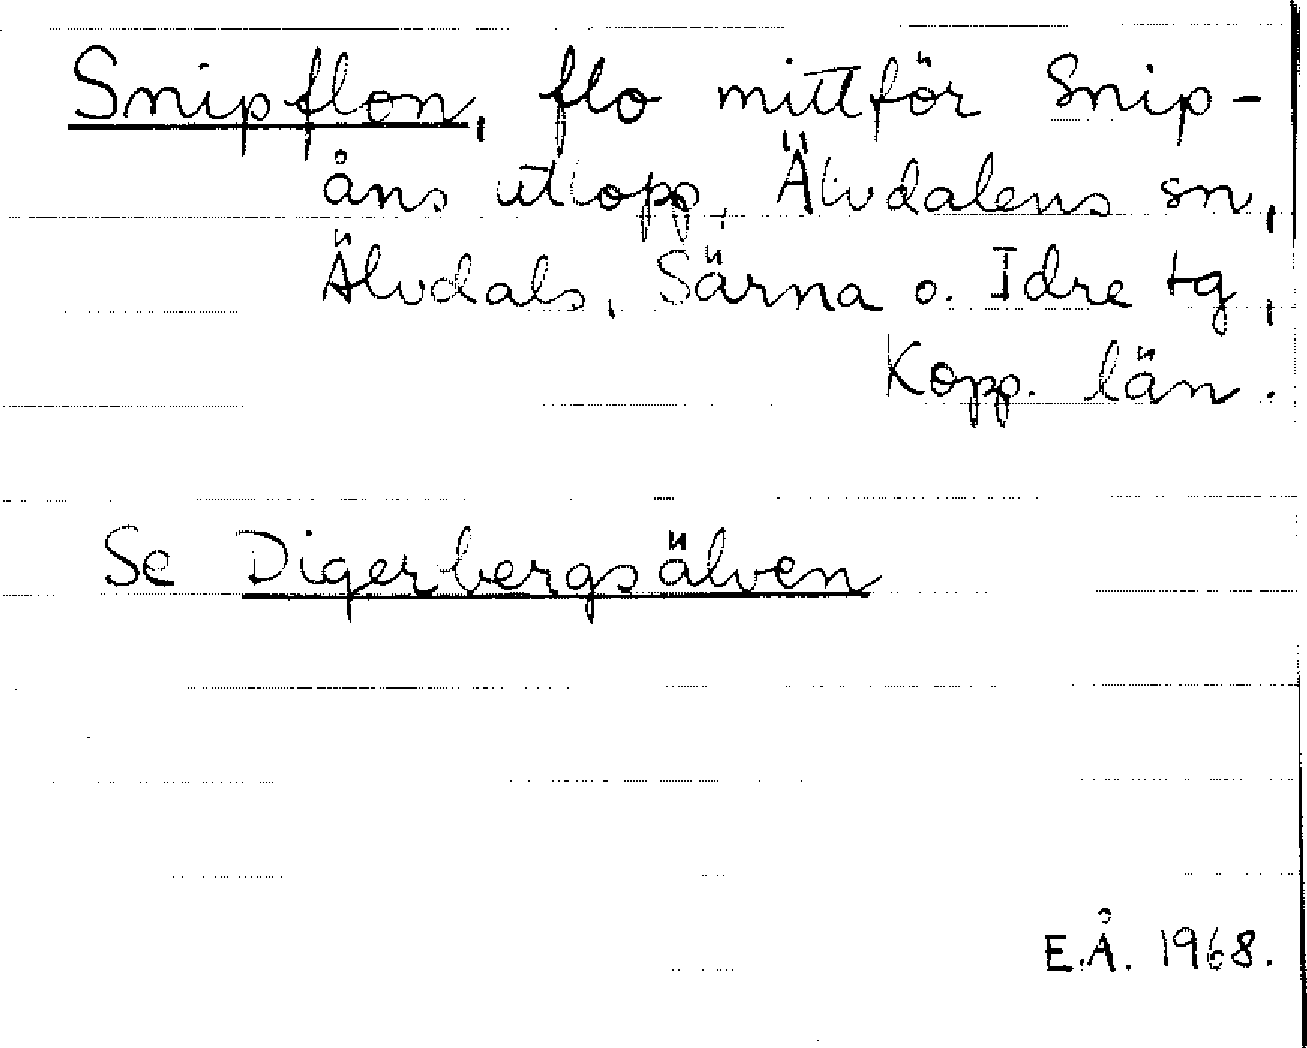 Snipflon, flo mittför Snip-
åns utlopp, Älvdalens sn,
Älvdals, Särna o. Idre tg,
Kopp. län.
Se Digerbergsälven
E.Å. 1968.